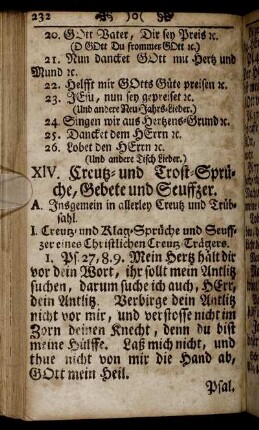 232 )o(
20. GOtt Vater, Dir sey Preis ꝛc.
(O GOtt Du frommer GOtt ꝛc.)
21. Nun dancket GOtt mit Hertz und
Mund ꝛc.
22. Helfft mir GOtts Güte preisen ꝛc.
23. JEsu, nun sey gepreiset ꝛc.
(Und andere Neu-Jahrs-Lieder.)
24. Singen wir aus Hertzens-Grund ꝛc.
25. Dancket dem HErrn ꝛc.
26. Lobet den HErrn ꝛc.
(Und andere Tisch Lieder.)
XIV. Creutz- und Trost-Sprü-
che, Gebete und Seuffzer.
A. Insgemein in allerley Creutz und Trüb-
sahl.
I. Creutz- und Klag-Sprüche und Seuff-
zer eines Christlichen Creutz Trägers.
1. Ps. 27, 8. 9. Mein Hertz hält dir
vor dein Wort, ihr sollt mein Antlitz
suchen, darum suche ich auch, HErr,
dein Antlitz. Verbirge dein Antlitz
nicht vor mir, und verstosse nicht im
Zorn deinen Knecht, denn du bist
meine Hülffe. Laß mich nicht, und
thue nicht von mir die Hand ab,
GOtt mein Heil.
Psal.